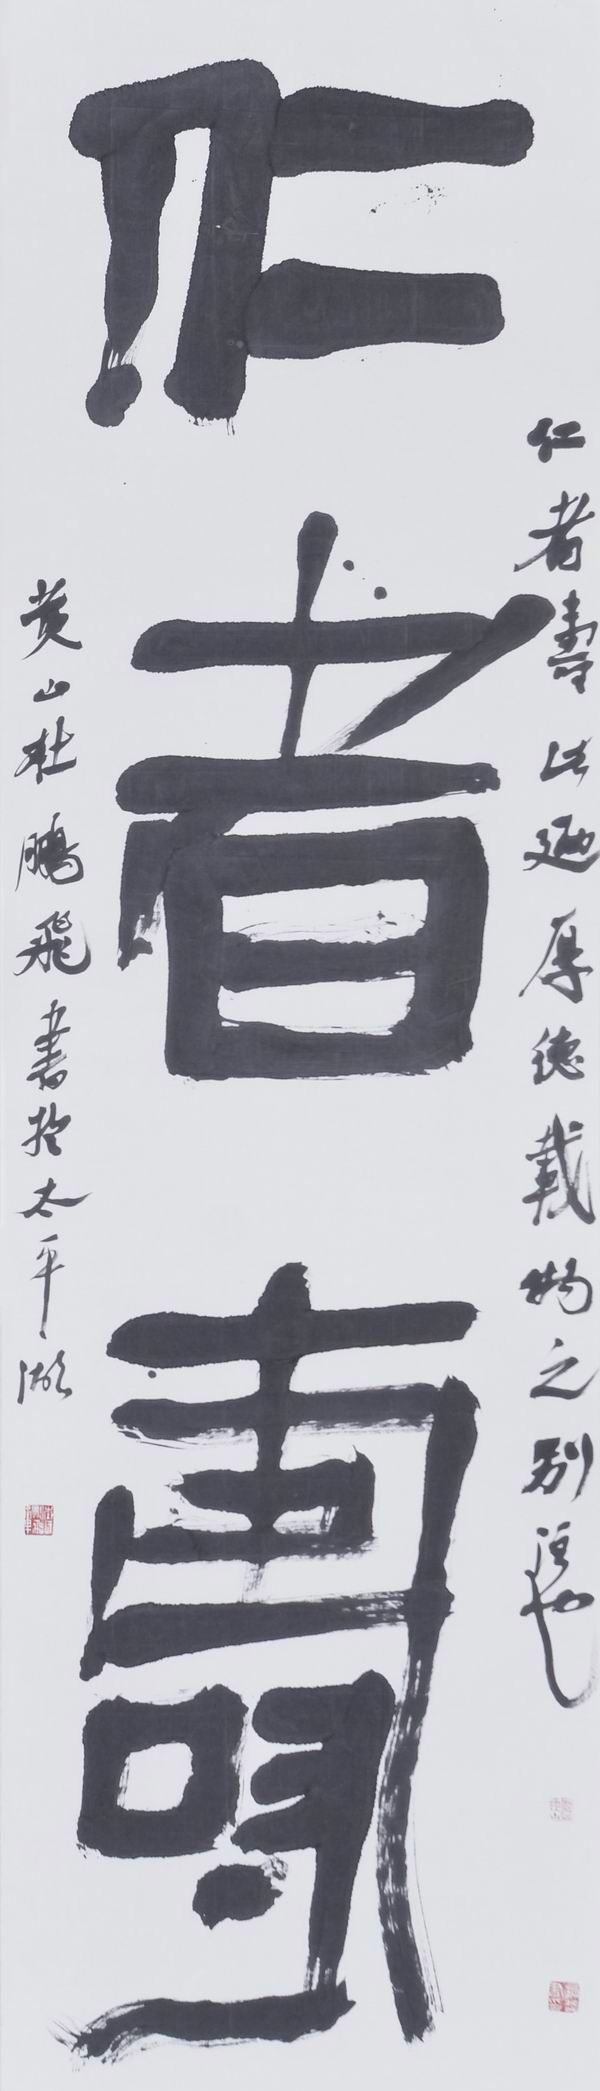 仁者壽
仁者壽此迺厚德載物之別注也
黄山杜鵬飛書於太平湖